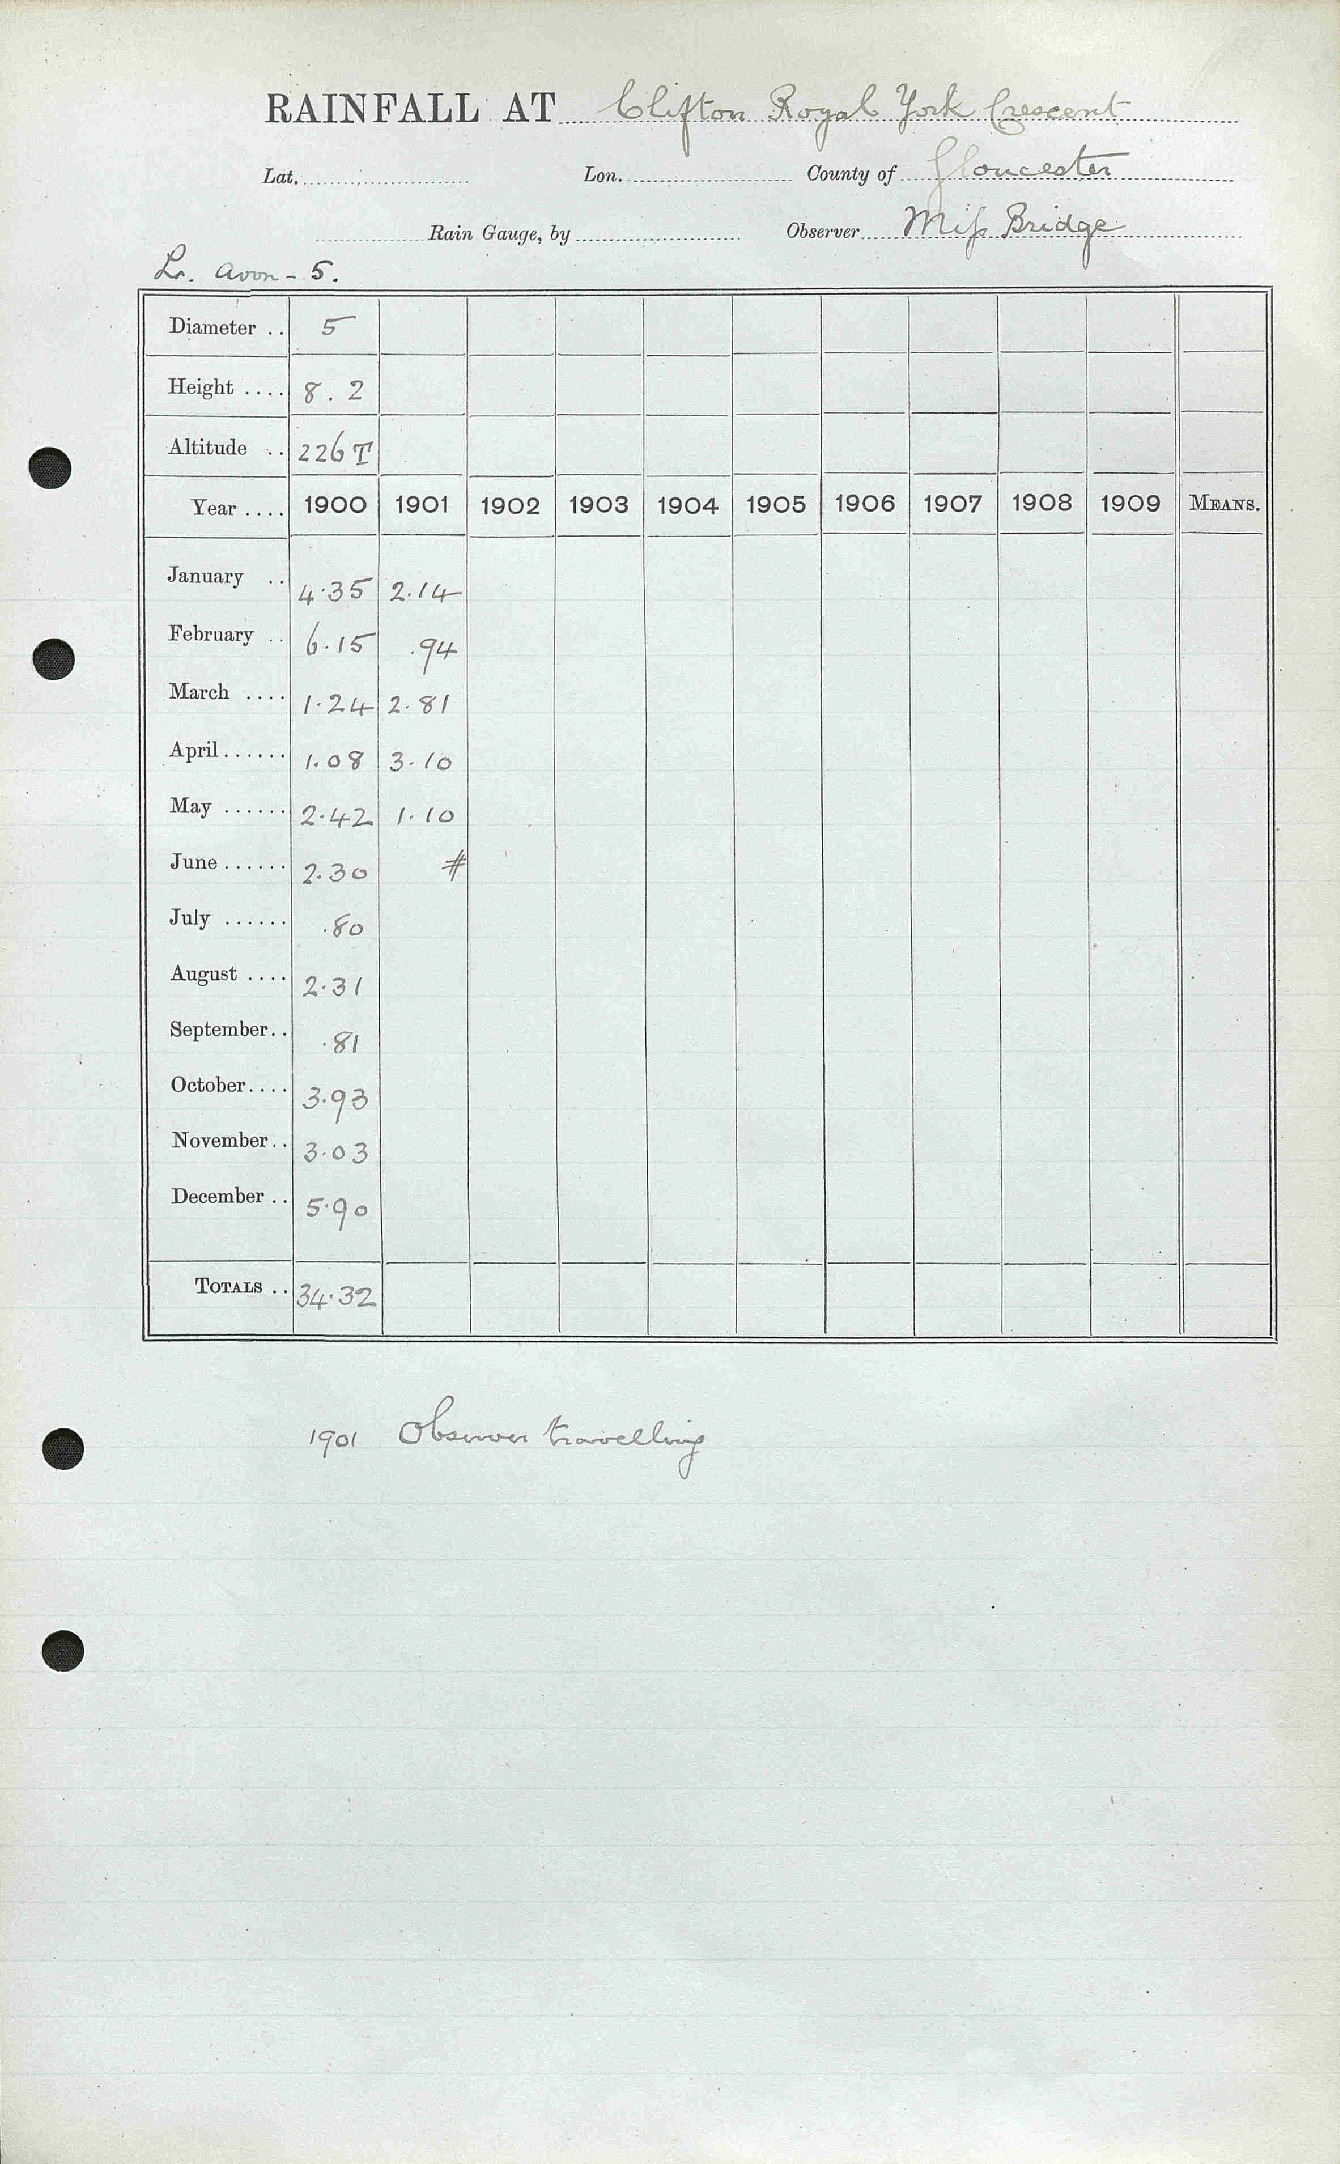 RAINFALL AT Clifton Royal York Crescent
Lat. Lon. County of Gloucester
Rain Gauge, by Observer Miss Bridge
Lr. Avon - 5.
Diameter .. 5
Height .... 8 . 2
Altitude .. 226 T
Year .... 1900 1901 1902 1903 1904 1905 1906 1907 1908 1909 MEANS.
January .. 4.35 2.14
February .. 6.15 .94
March .... 1.24 2.81
April...... 1.08 3.10
May ...... 2.42 1.10
June...... 2.30 #
July ...... .80
August .... 2.31
September.. .81
October.... 3.93
November.. 3.03
December .. 5.90
TOTALS .. 34.32
1901 Observer travelling